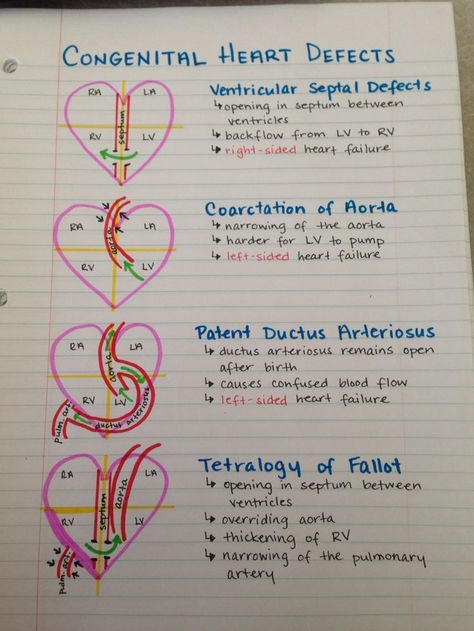 CONGENITAL HEART DEFECTS
RA
LA
septum
RV
LV
Ventricular Septal Defects
↳ opening in septum between
ventricles
↳ backflow from LV to RV
↳ right-sided heart failure
RA
LA
aorta
RV
LV
Coarctation of Aorta
↳ narrowing of the aorta
↳ harder for LV to pump
↳ left-sided heart failure
RA
LA
aorta
RV
LV
pulm. art.
ductus arteriosus
Patent Ductus Arteriosus
↳ ductus arteriosus remains open
after birth
↳ causes confused blood flow
↳ left-sided heart failure
RA
LA
septum
aorta
RV
LV
pulm. art.
Tetralogy of Fallot
↳ opening in septum between
ventricles
↳ overriding aorta
↳ thickening of RV
↳ narrowing of the pulmonary
artery